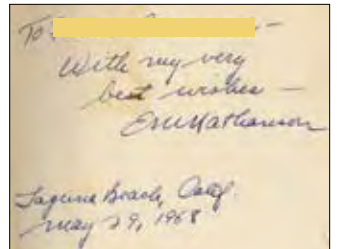 To
With my very
best wishes —
E M Nathanson
Laguna Beach, Calif.
May 29, 1968